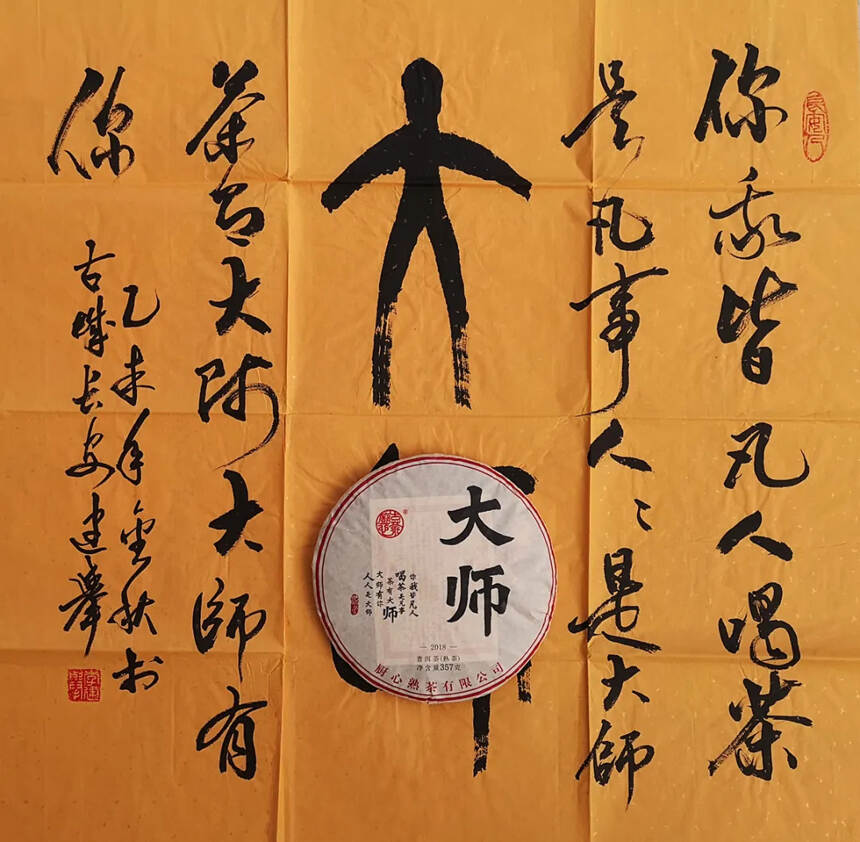 你我皆凡人喝茶
是凡事人々是大師
大
茶有大师大師有
你
乙未年金秋书
古城长安建舉
大师
你我皆凡人
喝茶是凡事
茶有大师
大师有你
人人是大师
— 2018 —
普洱茶(熟茶)
净含量357克
厨心熟茶有限公司